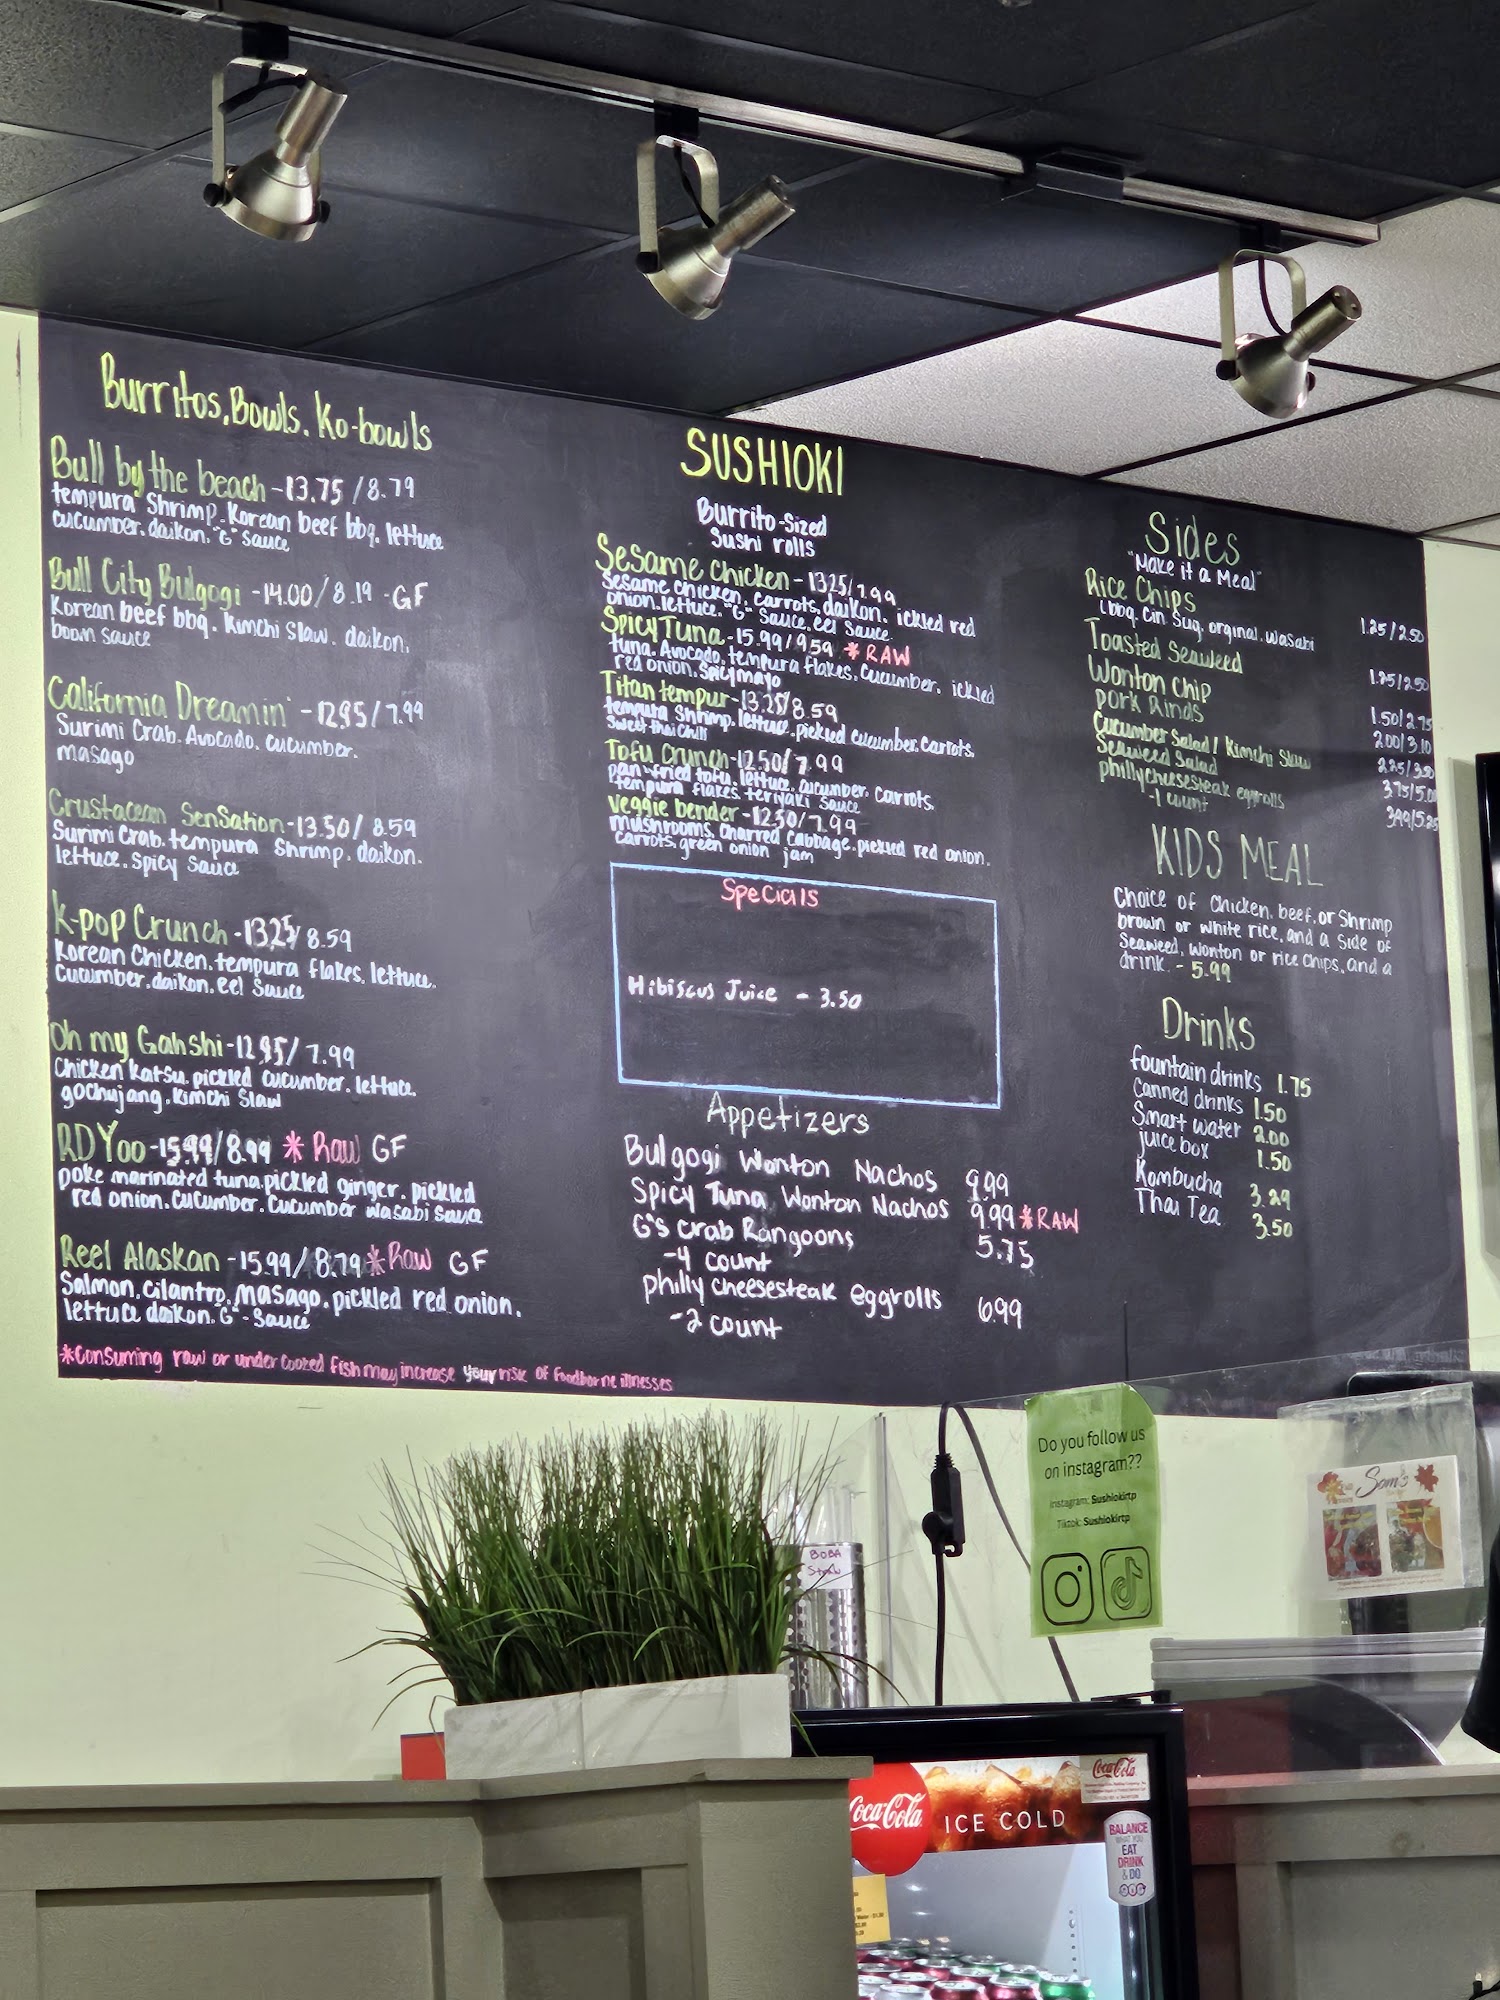 Burritos, Bowls, Ko-bowls
Bull by the beach - 13.75 / 8.79
tempura Shrimp. Korean beef bbq. lettuce
cucumber. daikon. "G" sauce
Bull City Bulgogi - 14.00 / 8.19 - GF
Korean beef bbq. Kimchi Slaw. daikon.
boom sauce
California Dreamin' - 12.95 / 7.99
Surimi Crab. Avocado. cucumber.
masago
Crustacean SenSation - 13.50 / 8.59
Surimi Crab. tempura Shrimp. daikon.
lettuce. Spicy Sauce
K-pop Crunch - 13.25 / 8.59
Korean Chicken. tempura flakes. lettuce.
Cucumber. daikon. eel Sauce
Oh my Gahshi - 12.95 / 7.99
Chicken Katsu. pickled cucumber. lettuce.
gochujang. Kimchi Slaw
RD Yoo - 15.99 / 8.99 * Raw GF
poke marinated tuna. pickled ginger. pickled
red onion. cucumber. Cucumber wasabi Sauce
Reel Alaskan - 15.99 / 8.79 * Raw GF
Salmon. cilantro. masago. pickled red onion.
lettuce daikon. G - Sauce
*Consuming raw or under cooked fish may increase your risk of foodborne illnesses
SUSHIOKI
Burrito-Sized
Sushi rolls
Sesame Chicken - 13.25 / 7.99
Sesame chicken. carrots. daikon. ickled red
onion. lettuce. "G" Sauce. eel Sauce
Spicy Tuna - 15.99 / 9.59 * RAW
tuna. Avocado. tempura flakes. Cucumber. ickled
red onion. Spicy mayo
Titan tempur - 13.25 / 8.59
tempura Shrimp. lettuce. pickled cucumber. Carrots.
Sweet thai Chili
Tofu Crunch - 12.50 / 7.99
pan-fried tofu. lettuce. cucumber. Carrots.
tempura flakes. teriyaki Sauce
Veggie bender - 12.50 / 7.99
mushrooms. Charred Cabbage. pickled red onion.
carrots. green onion jam
Specials
Hibiscus Juice - 3.50
Appetizers
Bulgogi Wonton Nachos 9.99
Spicy Tuna Wonton Nachos 9.99 * RAW
G's Crab Rangoons 5.75
-4 count
philly cheesesteak eggrolls 6.99
-2 count
Sides
"Make it a Meal"
Rice Chips 1.25 / 2.50
(bbq, Cin Sug, orginal, wasabi
Toasted Seaweed 1.25 / 2.50
Wonton Chip 1.50 / 2.75
pork Rinds 2.00 / 3.10
Cucumber Salad / Kimchi Slaw 2.25 / 3.50
Seaweed Salad 3.75 / 5.00
philly cheesesteak eggrolls 3.99 / 5.25
-1 count
KIDS MEAL
Choice of Chicken, beef, or Shrimp
brown or white rice, and a side of
Seaweed, wonton or rice chips, and a
drink - 5.99
Drinks
fountain drinks 1.75
Canned drinks 1.50
Smart water 2.00
juice box 1.50
Kombucha 3.29
Thai Tea 3.50
Do you follow us
on instagram??
Instagram: Sushiokirtp
Tiktok: Sushiokirtp
BOBA
Straw
Sam's
Coca-Cola
ICE COLD
Coca-Cola
BALANCE
WHAT YOU
EAT
DRINK
& DO